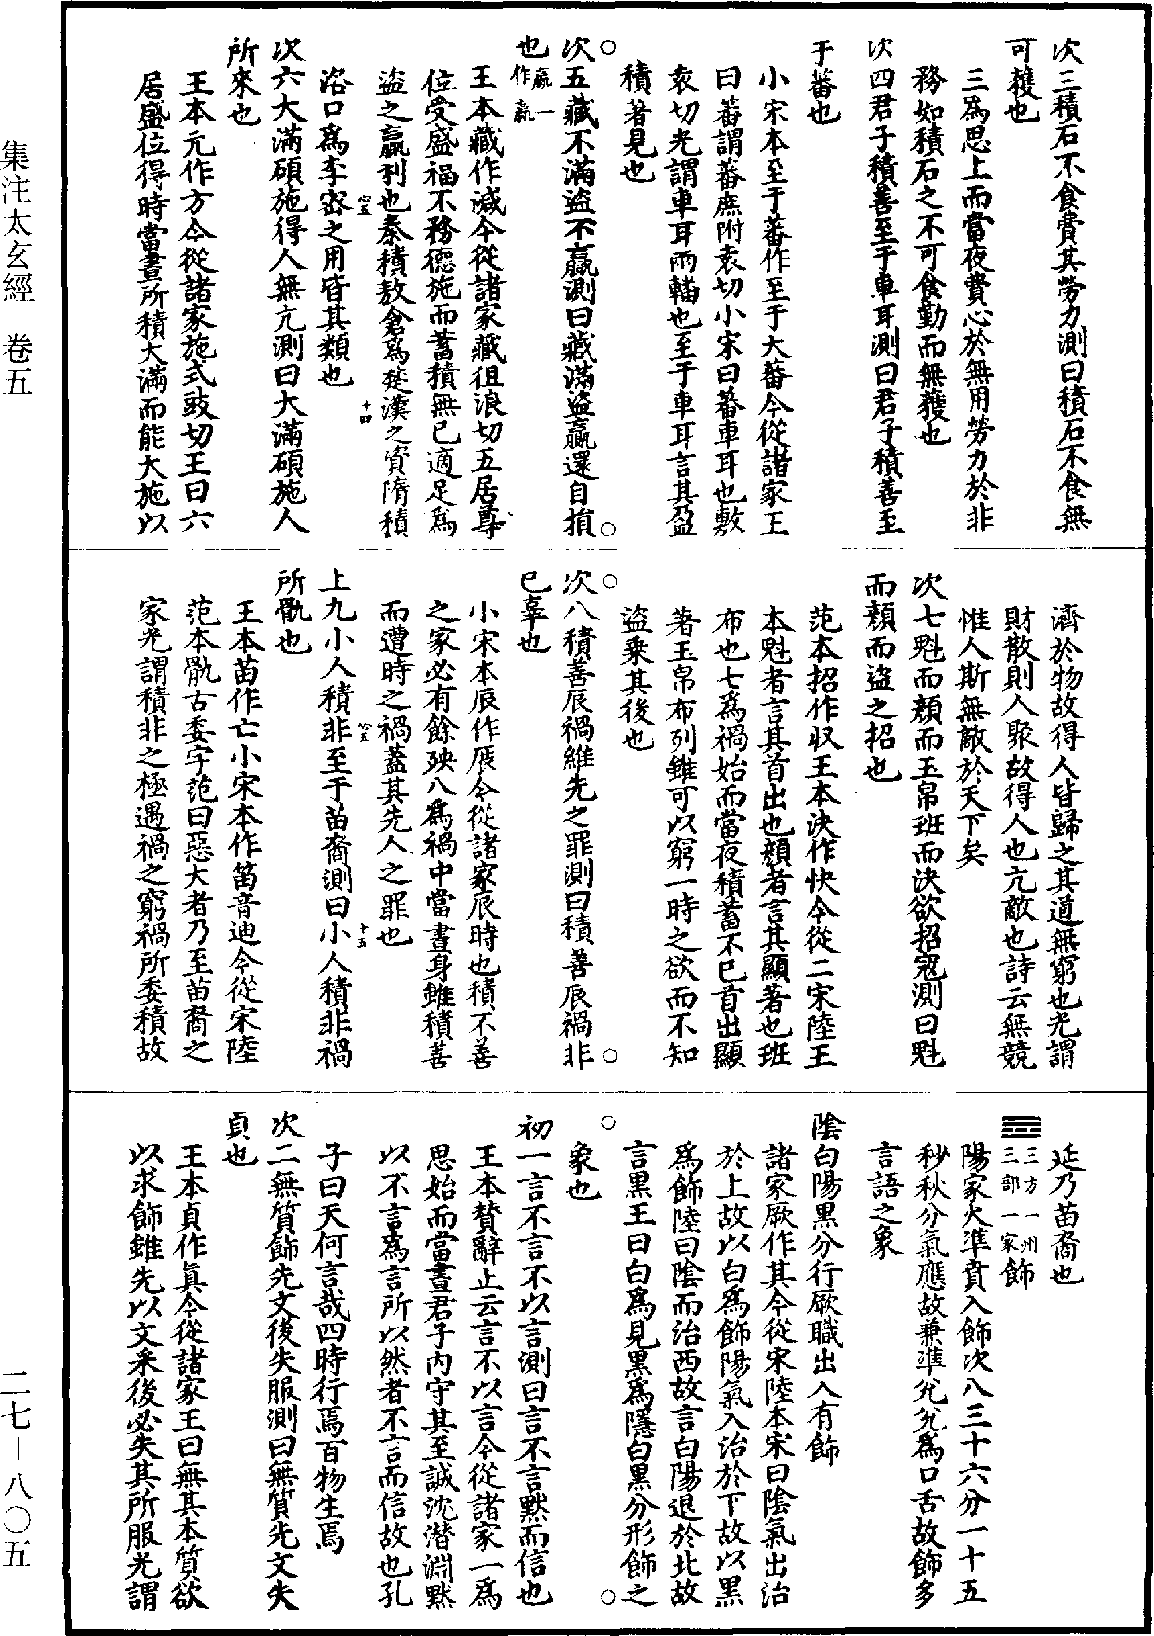 次三積石不食費其勞力測曰積石不食無
可穫也
三為思上而當夜費心於無用勞力於非
務如積石之不可食勤而無穫也
次四君子積善至于車耳測曰君子積善至
于蕃也
小宋本至于蕃作至于大蕃今從諸家王
曰蕃謂蕃庶附袁切小宋曰蕃車耳也敷
袁切光謂車耳兩轓也至于車耳言其盈
積著見也
次五藏不滿盜不贏測曰藏滿盜贏還自損
也贏一作羸
王本藏作減今從諸家藏徂浪切五居尊
位受盛福不務德施而蓄積無已適足為
盜之贏利也秦積敖倉為楚漢之資隋積
洛口為李密之用皆其類也
次六大滿碩施得人無亢測曰大滿碩施人
所來也
王本元作方今從諸家施式豉切王曰六
居盛位得時當晝所積大滿而能大施以
濟於物故得人皆歸之其道無窮也光謂
財散則人聚故得人也亢敵也詩云無競
惟人斯無敵於天下矣
次七魁而顏而玉帛班而決欲招寇測曰魁
而顏而盜之招也
范本招作収王本決作快今從二宋陸王
本魁者言其首出也顏者言其顯著也班
布也七為禍始而當夜積蓄不已首出顯
著玉帛布列雖可以窮一時之欲而不知
盜乗其後也
次八積善辰禍維先之罪測曰積善辰禍非
已辜也
小宋本辰作㞋今從諸家辰時也積不善
之家必有餘殃八為禍中當晝身雖積善
而遭時之禍蓋其先人之罪也
上九小人積非至于苗裔測曰小人積非禍
所骫也
王本苗作亡小宋本作笛音迪今從宋陸
范本骫古委字范曰惡大者乃至苗裔之
家光謂積非之極遇禍之窮禍所委積故
延乃苗裔也
𝌼三方一州三部一家飾
陽家火準賁入飾次八三十六分一十五
秒秋分氣應故兼準兊兊為口舌故飾多
言語之象
陰白陽黑分行厥職出入有飾
諸家厥作其今從宋陸本宋曰陰氣出治
於上故以白為飾陽氣入治於下故以黑
為飾陸曰陰而治西故言白陽退於北故
言黑王曰白為見黑為隱白黑分形飾之
象也
初一言不言不以言測曰言不言默而信也
王本賛辭止云言不以言今從諸家一為
思始而當晝君子內守其至誠沈潛淵默
以不言為言所以然者不言而信故也孔
子曰天何言哉四時行焉百物生焉
次二無質飾先文後失服測曰無質先文失
貞也
王本貞作眞今從諸家王曰無其本質欲
以求飾雖先以文釆後必失其所服光謂
集注太玄經　卷五
二七—八〇五